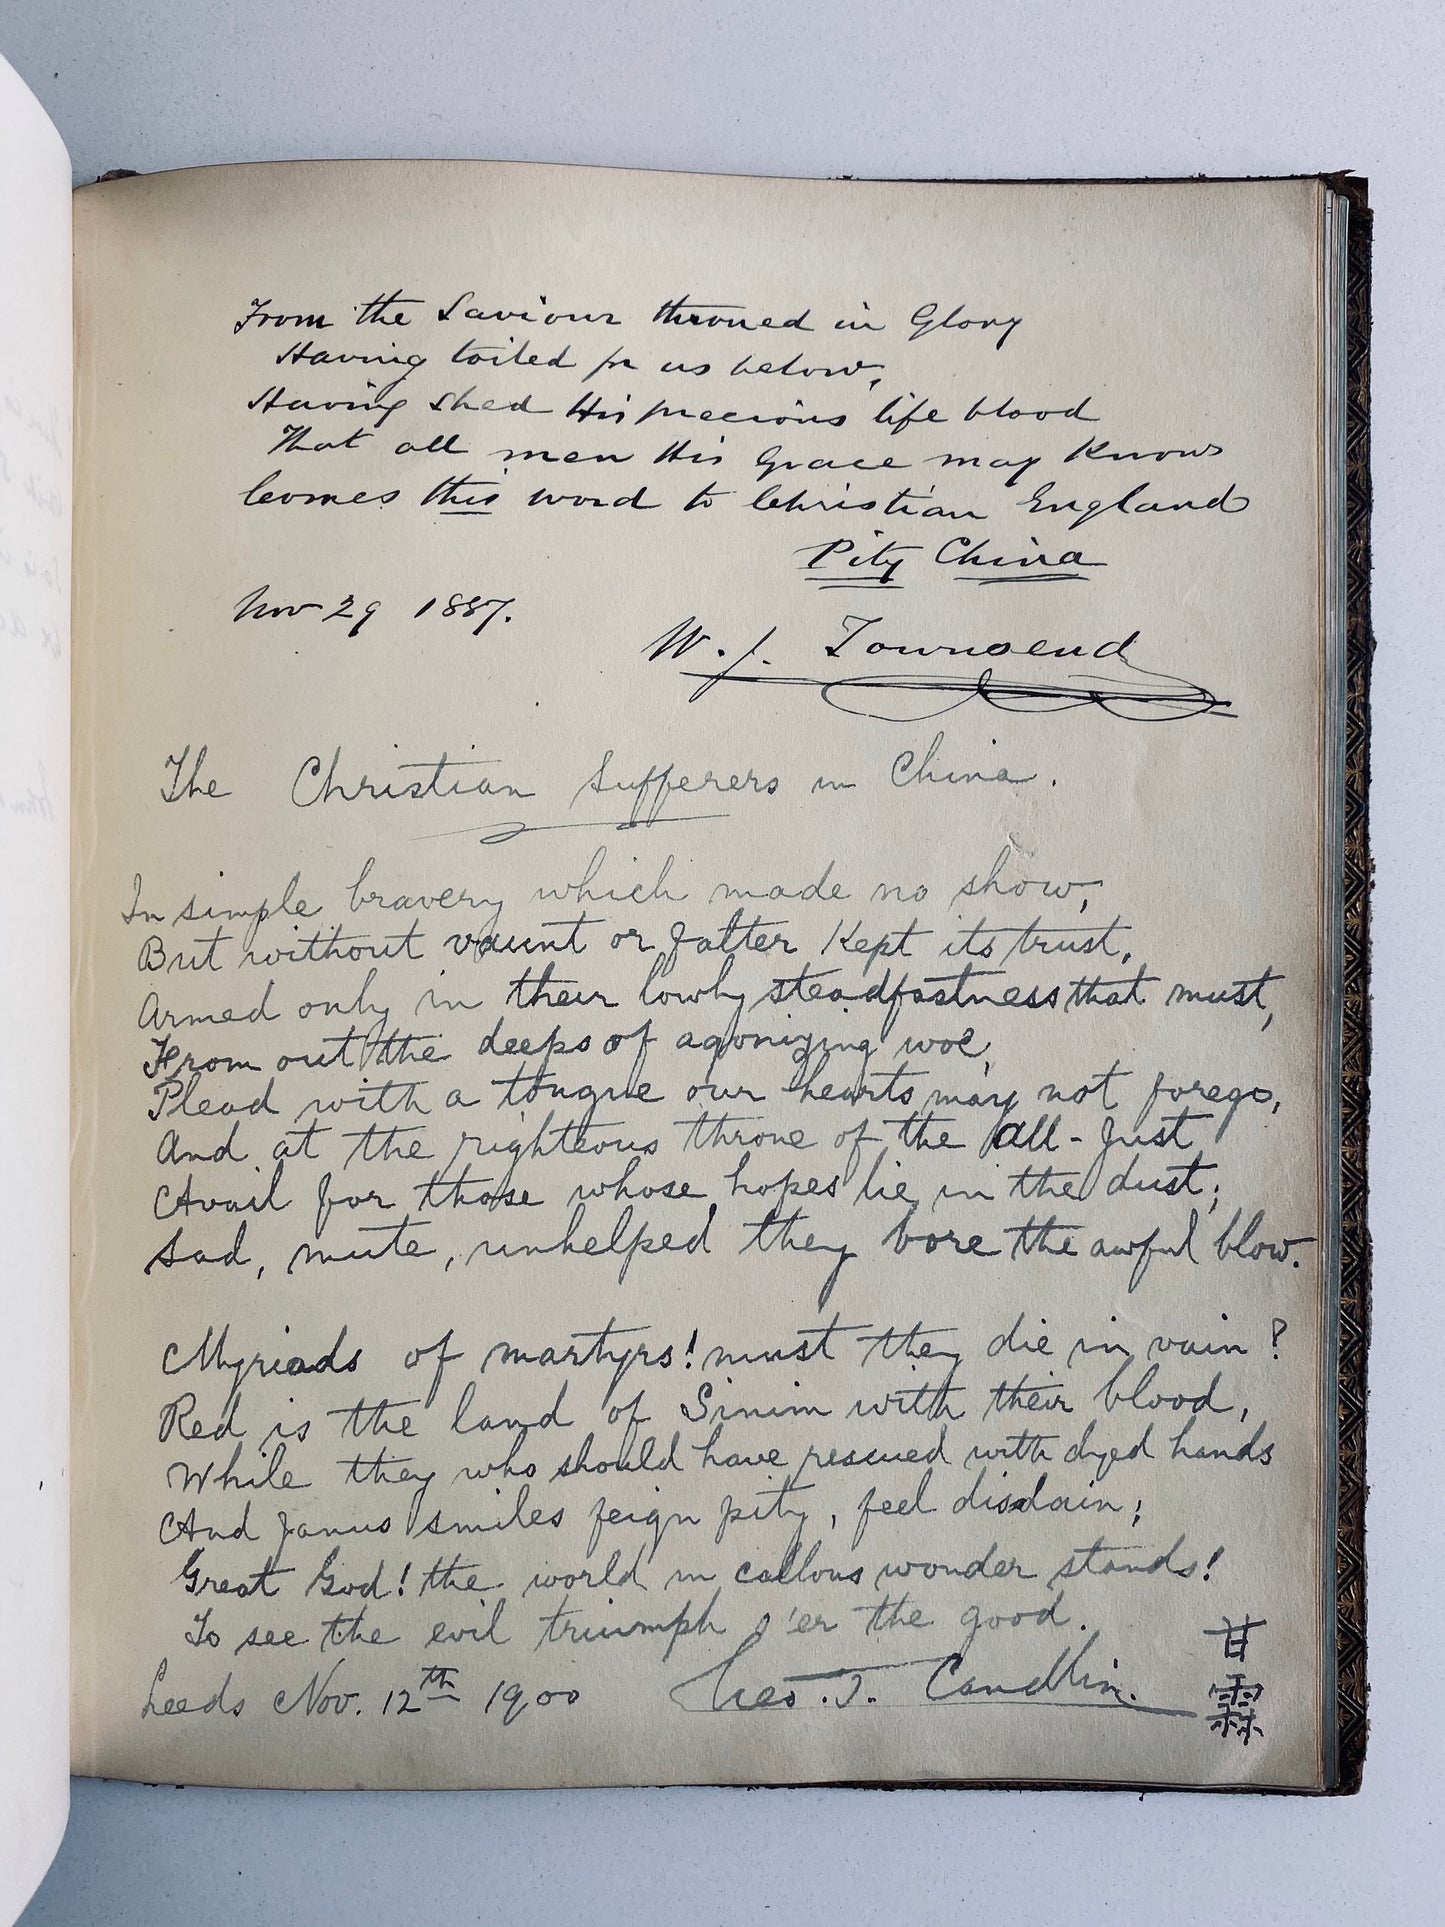 From the Saviour throned in Glory
Having toiled for us below,
Having shed His precious life blood
That all men His Grace may know
Comes this word to Christian England
Pity China
Nov 29 1887.
W. J. Townsend
The Christian Sufferers in China.
In simple bravery which made no show,
But without vaunt or falter kept its trust,
Armed only in their lowly steadfastness that must,
From out the deeps of agonizing woe,
Plead with a tongue our hearts may not forego,
And at the righteous throne of the All-Just
Avail for those whose hopes lie in the dust;
Sad, mute, unhelped they bore the awful blow.
Myriads of martyrs! must they die in vain?
Red is the land of Sinim with their blood,
While they who should have rescued with dyed hands
And Janus smiles feign pity, feel disdain;
Great God! the world in callous wonder stands!
To see the evil triumph o'er the good.
Leeds Nov. 12th 1900
Geo. T. Candlin.
甘
霖